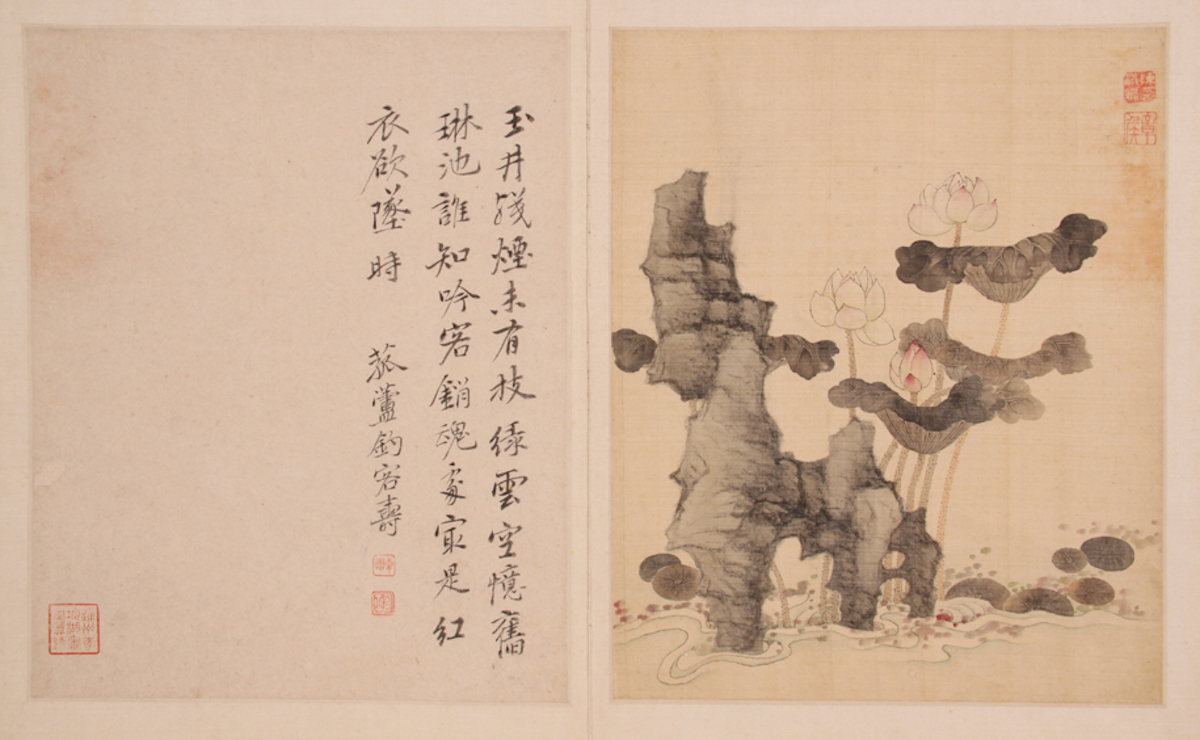 玉井殘煙未有枝綠雲空憶舊
琳池誰知吟客銷魂處㝡是紅
衣欲墜時
菰蘆釣客壽